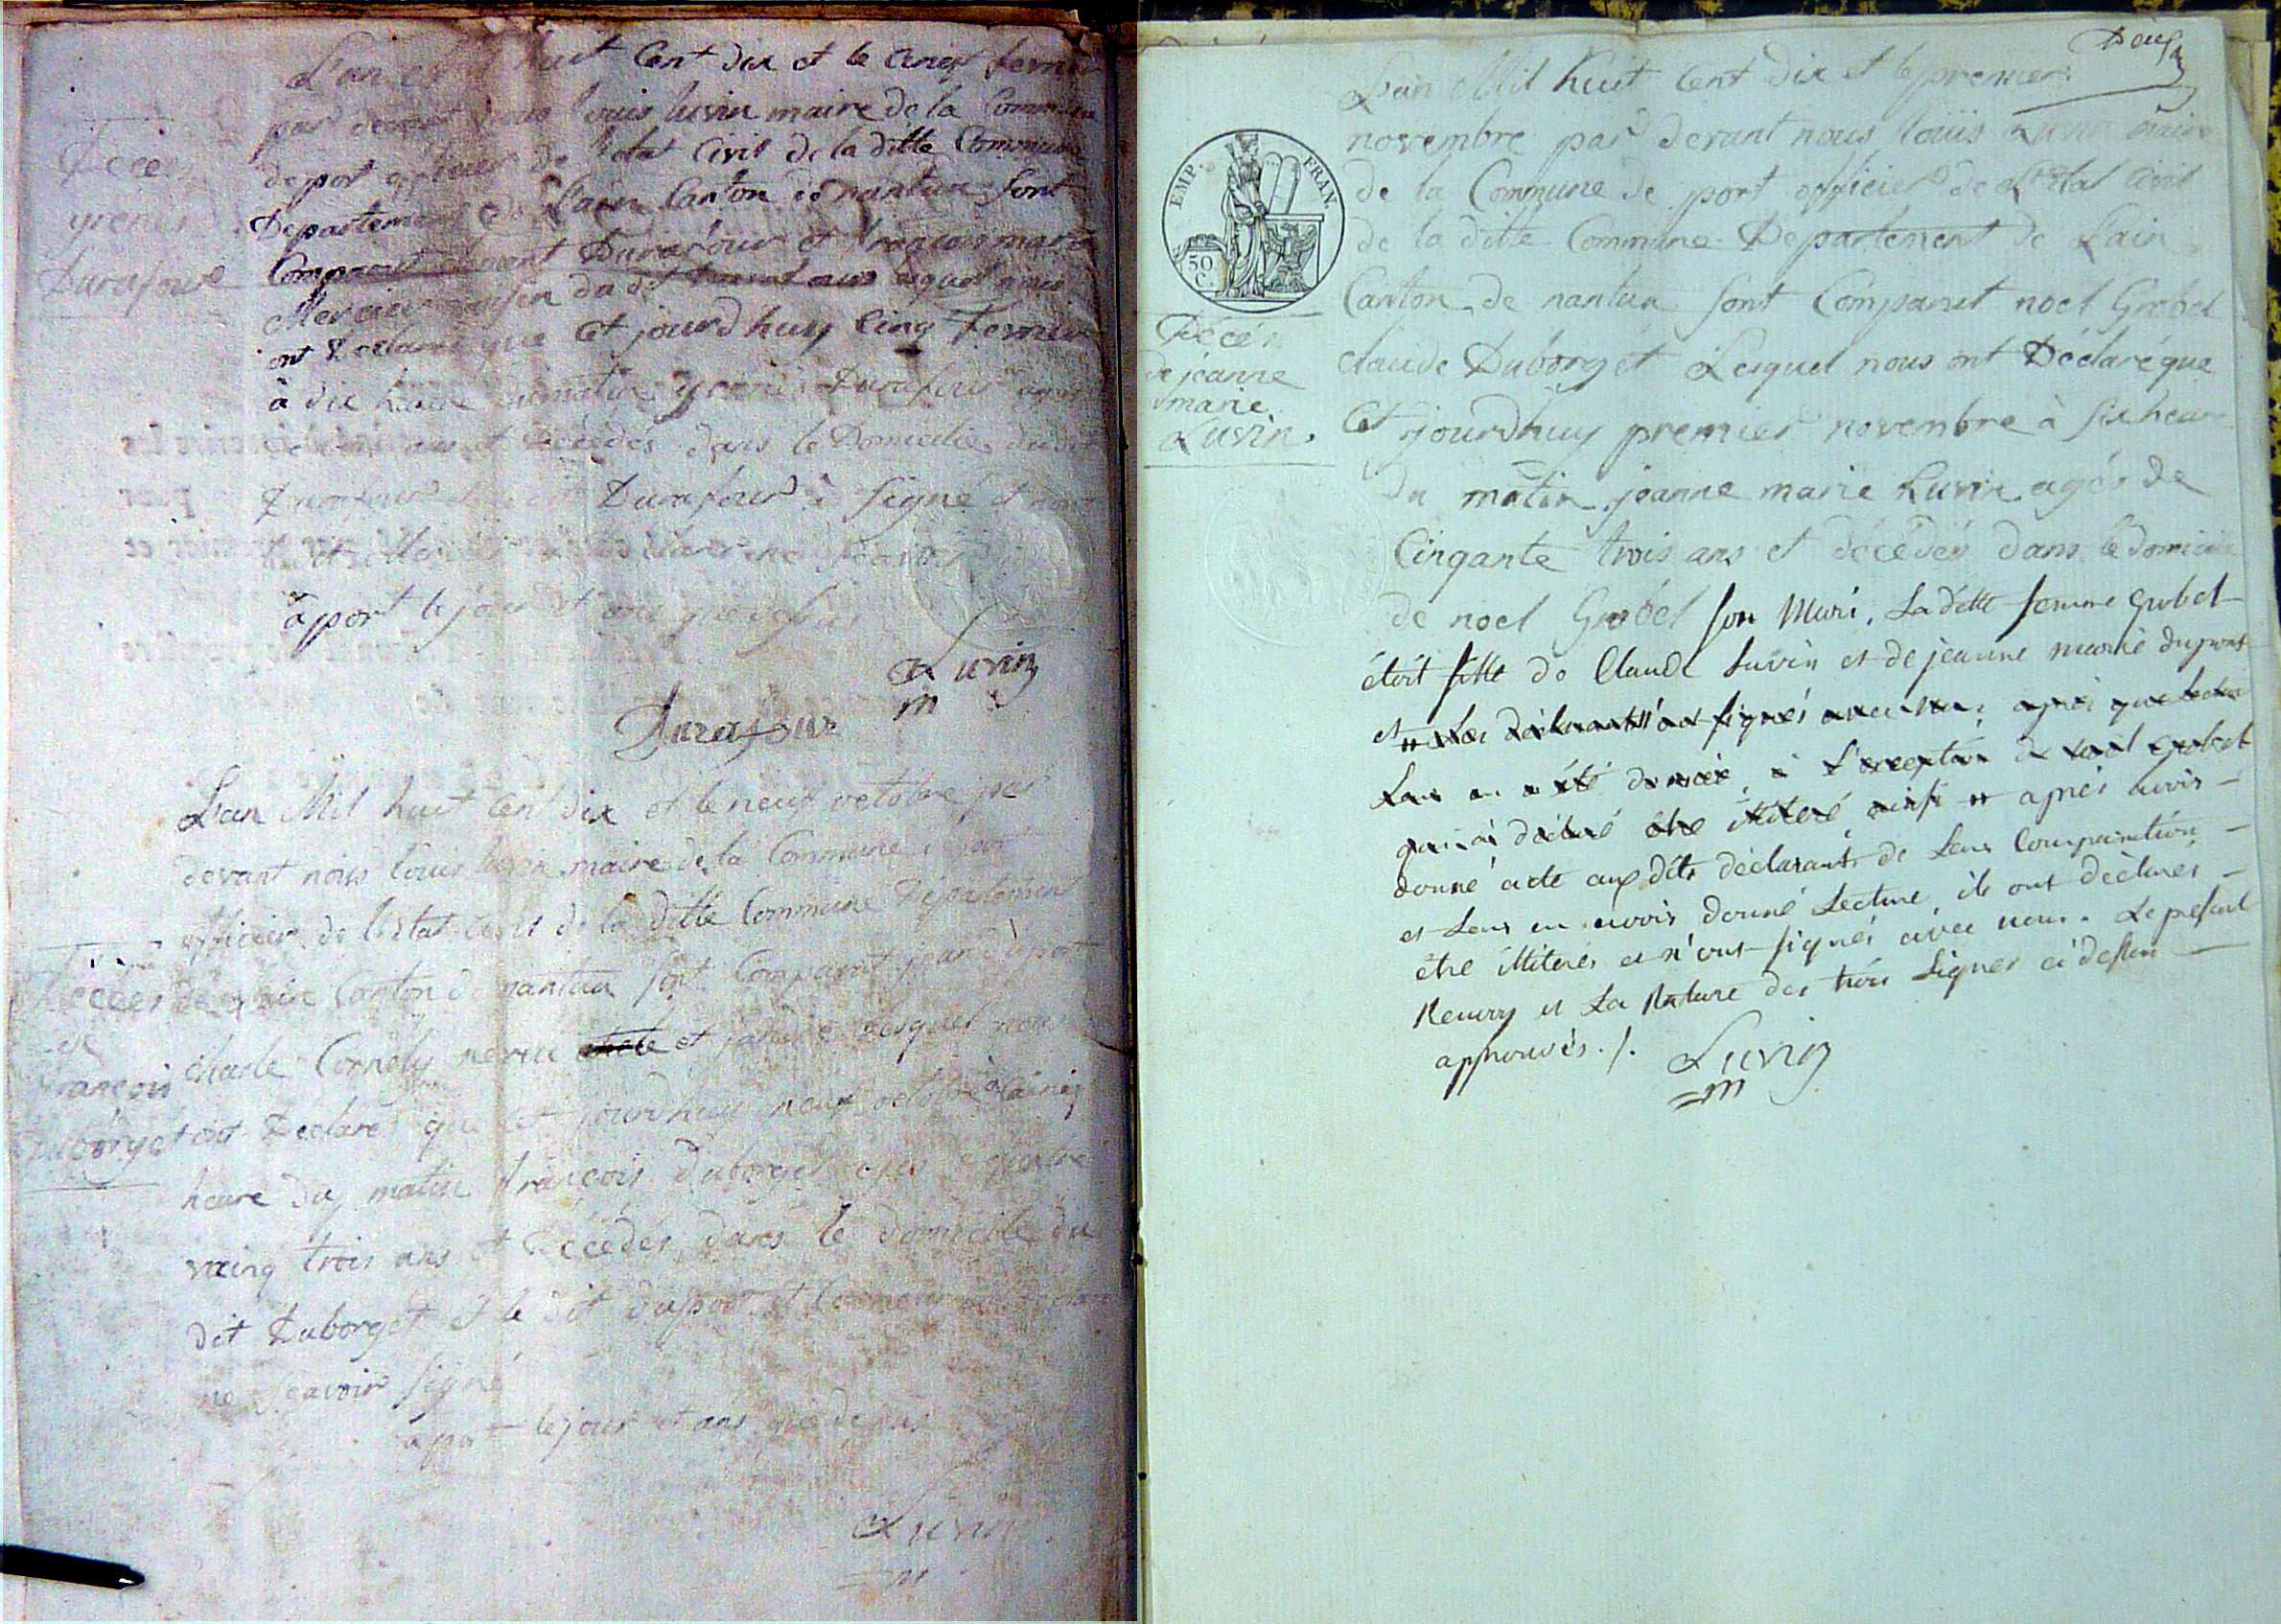 L'an huit Cent dix et le cinq fevrier
par devant nous louis luvin maire de la Commune
de port officier de letat Civil de la ditte Commune
Departement de Lain Canton de nantua Sont
Comparut Durafour et françois marie
Mercier du dit lesquel nous
ont Declaré que Cet jourd'huy Cinq fevrier
à dix heure du matin yrenée Durafour agé
ans et décédés dans le Domicile dudit
Durafour Durafour à signé et non
le dit Mercier
à port le jour et ans que dessus
Luvin
m
Durafour
Décés
yrenée
Durafour
L'an Mil huit Cent dix et le neuf octobre par
devant nous louis luvin maire de la Commune de port
officier de l'Etat Civil de la ditte Commune Departement
de Lain Canton de nantua Sont Comparut jean duport
charle Cornely neveu et lesquel nous
ont Déclaré que Cet jourd'huy neuf octobre à Cinq
heure du matin françois Duborget agés quatre
vaing trois ans et Décédés dans le domicile du
dit Duborget et le dit duport et
ne Scavoir signé
à port le jour et ans que dessus
Luvin
m
Décés
de
françois
Duborget
L'an Mil huit Cent dix et le premier
novembre par devant nous louis Luvin maire
de la Commune de port officier de L'etat Civil
de la ditte Commune Departement de Lain
Canton de nantua Sont Comparut noel Grobel
claude Duborget Lesquel nous ont Déclaré que
Cet jourd'huy premier novembre à six heure
du matin jeanne marie Luvin agés de
Cinqante trois ans et décédés dans le domicile
de noel Grobel son Mari, La ditte femme Grobel
étoit fille de Claude Luvin et de jeanne marie duport
et Les déclarants ont signés avec nous après que lecture
Leur en a été donnée, à L'exception de noel Grobel
qui a déclaré être illiteré, ainsi après avoir
donné acte aux dits déclarants de Leur Comparution,
et Leur en avoir donné Lecture, ils ont déclarés
être illiterés et n'ont signés avec nous. Le présent
Renvoy et La Rature des trois Lignes ci dessus
approuvés ./.
Luvin
m
EMP. FRAN.
50 C.
Décés
de jeanne
marie
Luvin.